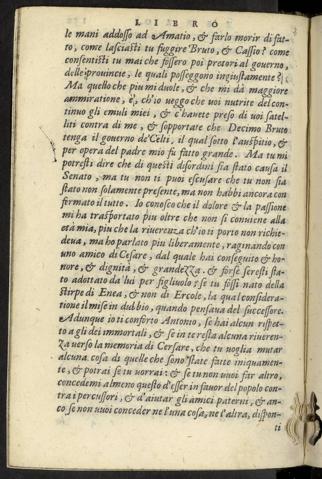 LIBRO
le mani addosso ad Amatio, & farlo morir di fat-
to, come lasciasti tu fuggire Bruto, & Cassio? come
consentisti tu mai che fossero poi pretori al governo,
delle provincie, le quali posseggono ingiustamente?
Ma quello che piu mi duole, & che mi dà maggiore
ammiratione, è, ch'io veggo che voi nutrite del con-
tinuo gli emuli miei, & c'havete preso di voi satel-
liti contra di me, & sopportate che Decimo Bruto
tenga il governo de'Celti, il qual sotto l'auspitio, &
per opera del padre mio fu fatto grande. Ma tu mi
potresti dire che di questi disordini sia stato causa il
Senato, ma tu non ti puoi escusare che tu non sia
stato non solamente presente, ma non habbi ancora con
firmato il tutto. Io conosco che il dolore & la passione
mi ha trasportato piu oltre che non si conviene alla
età mia, piu che la riverenza ch'io ti porto non richie-
deua, ma ho parlato piu liberamente, raginando con
uno amico di Cesare, dal quale hai conseguito & ho-
nore, & dignità, & grandezza. & forse seresti sta-
to adottato da lui per figliuolo; se tu fossi nato della
stirpe di Enea, & non di Ercole, la qual consideratio-
ne il mise in dubbio, quando pensava del successore.
Adunque io ti conforto Antonio, se hai alcun rispet-
to a gli dei immortali, & se in te resta alcuna riveren-
za verso la memoria di Cersare, che tu voglia mutar
alcuna cosa di quelle che sono state fatte iniquamen-
te, & potrai se tu vorrai: & se tu non vuoi far altro,
concedemi almeno questo d'esser in favor del popolo con-
tra i percussori, & d'aiutar gli amici paterni, & an-
co se non vuoi conceder ne l'una cosa, ne l'altra, disponi-
ti